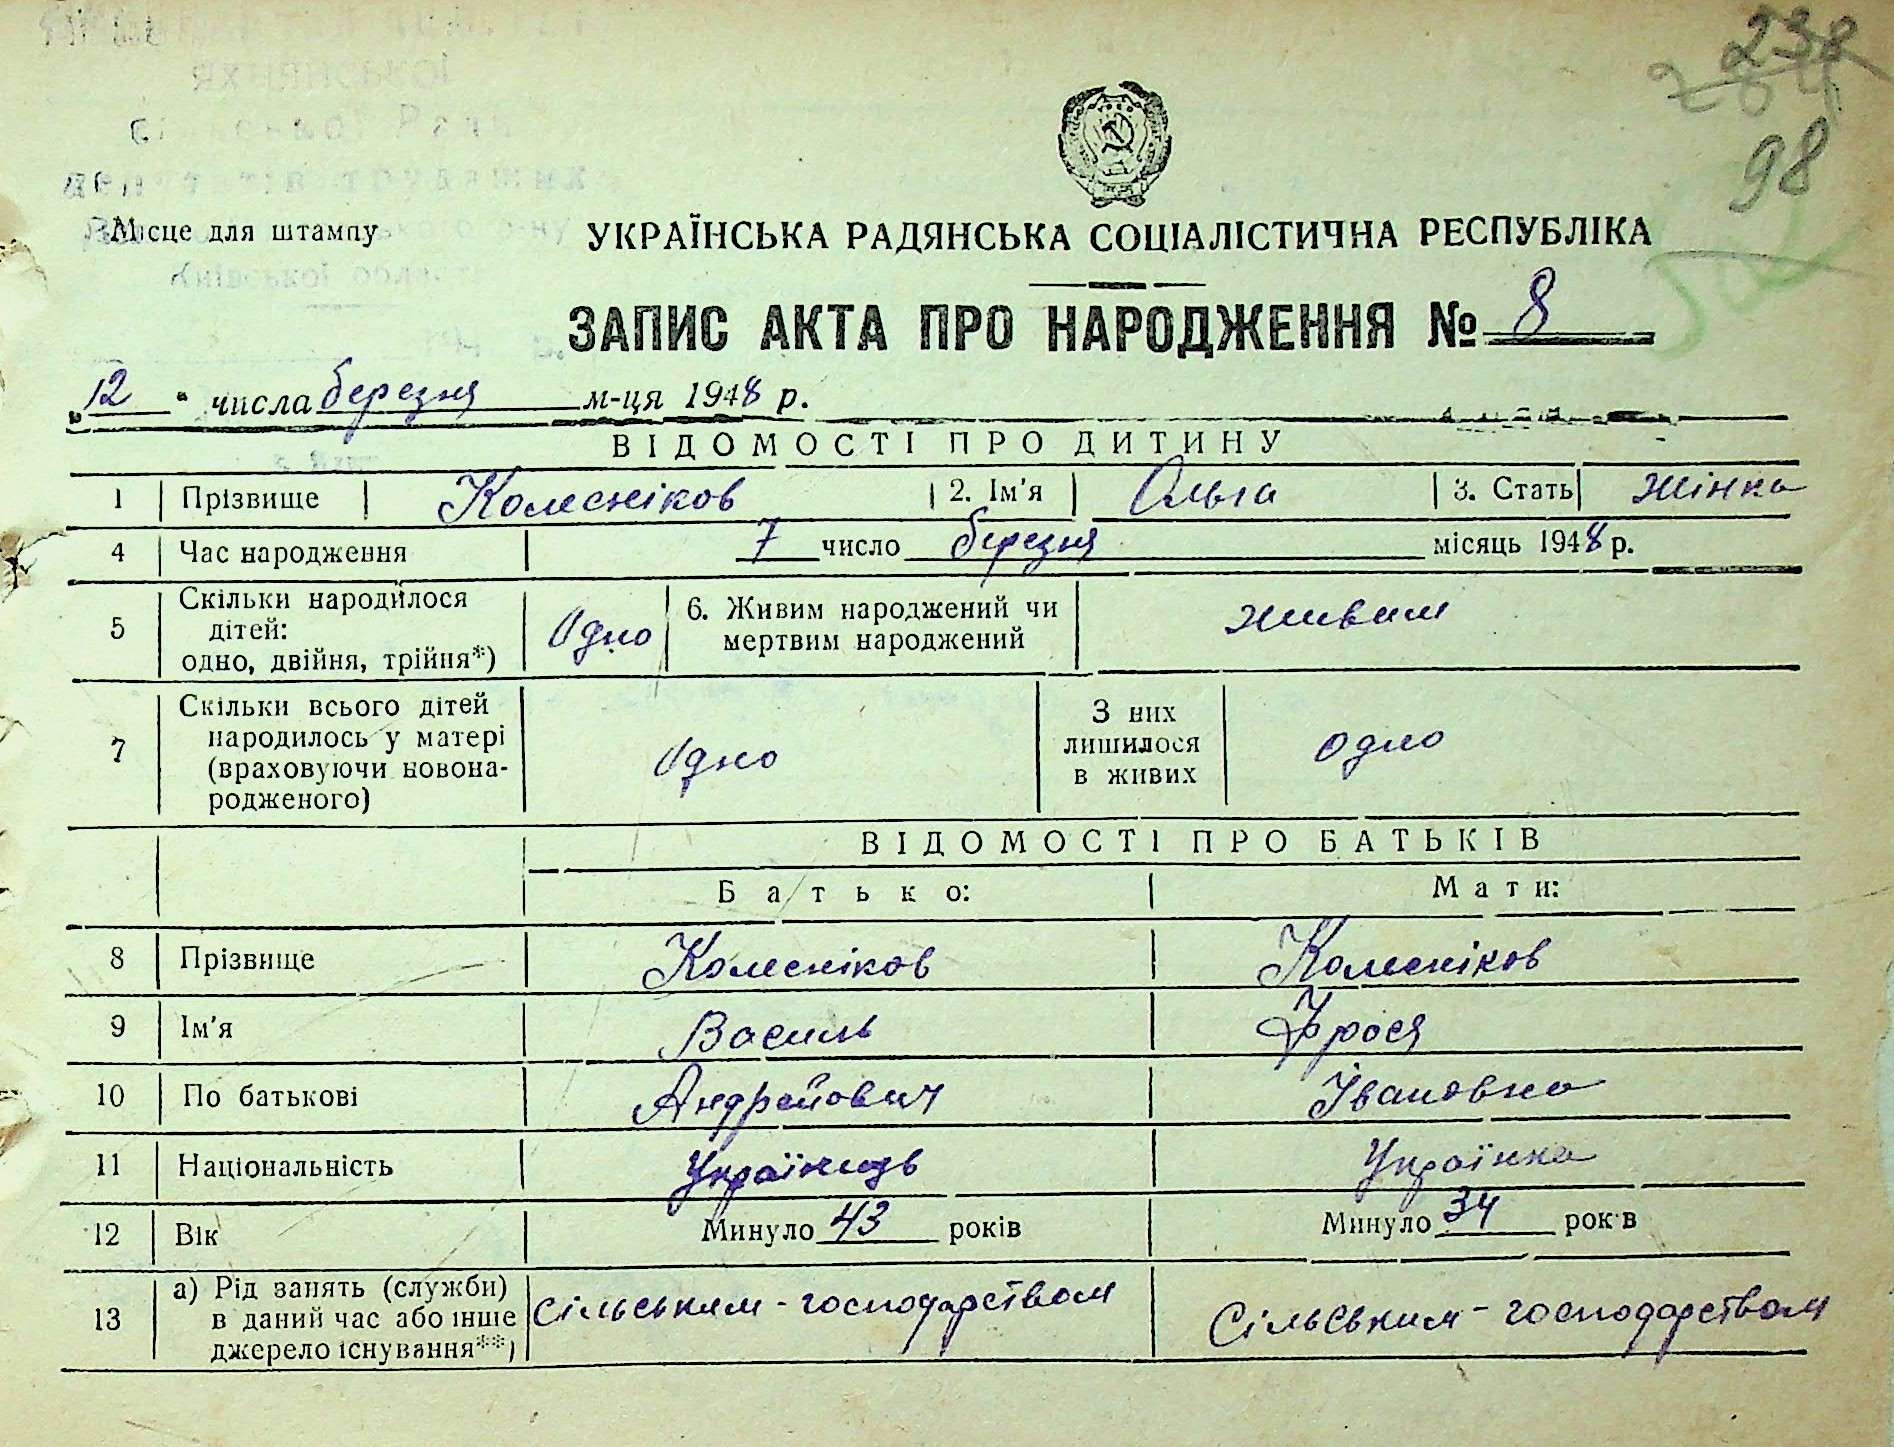 238
98
сільської Рада
депутатів трудящих
Київської області
Місце для штампу
УКРАЇНСЬКА РАДЯНСЬКА СОЦІАЛІСТИЧНА РЕСПУБЛІКА
ЗАПИС АКТА ПРО НАРОДЖЕННЯ № 8
„12“ числа березня м-ця 1948 р.
ВІДОМОСТІ ПРО ДИТИНУ
1 Прізвище Колесніков 2. Ім'я Ольга 3. Стать жінка
4 Час народження 7 число березня місяць 1948 р.
5 Скільки народилося дітей: одно, двійня, трійня*) Одно 6. Живим народжений чи мертвим народжений живим
7 Скільки всього дітей народилось у матері (враховуючи новонародженого) Одно З них лишилося в живих одно
ВІДОМОСТІ ПРО БАТЬКІВ
Батько: Мати:
8 Прізвище Колесніков Колесніков
9 Ім'я Василь Фрося
10 По батькові Андрейович Івановна
11 Національність Українець Українка
12 Вік Минуло 43 років Минуло 34 рок в
13 а) Рід занять (служби) в даний час або інше джерело існування**) Сільським-господарством Сільським-господарством